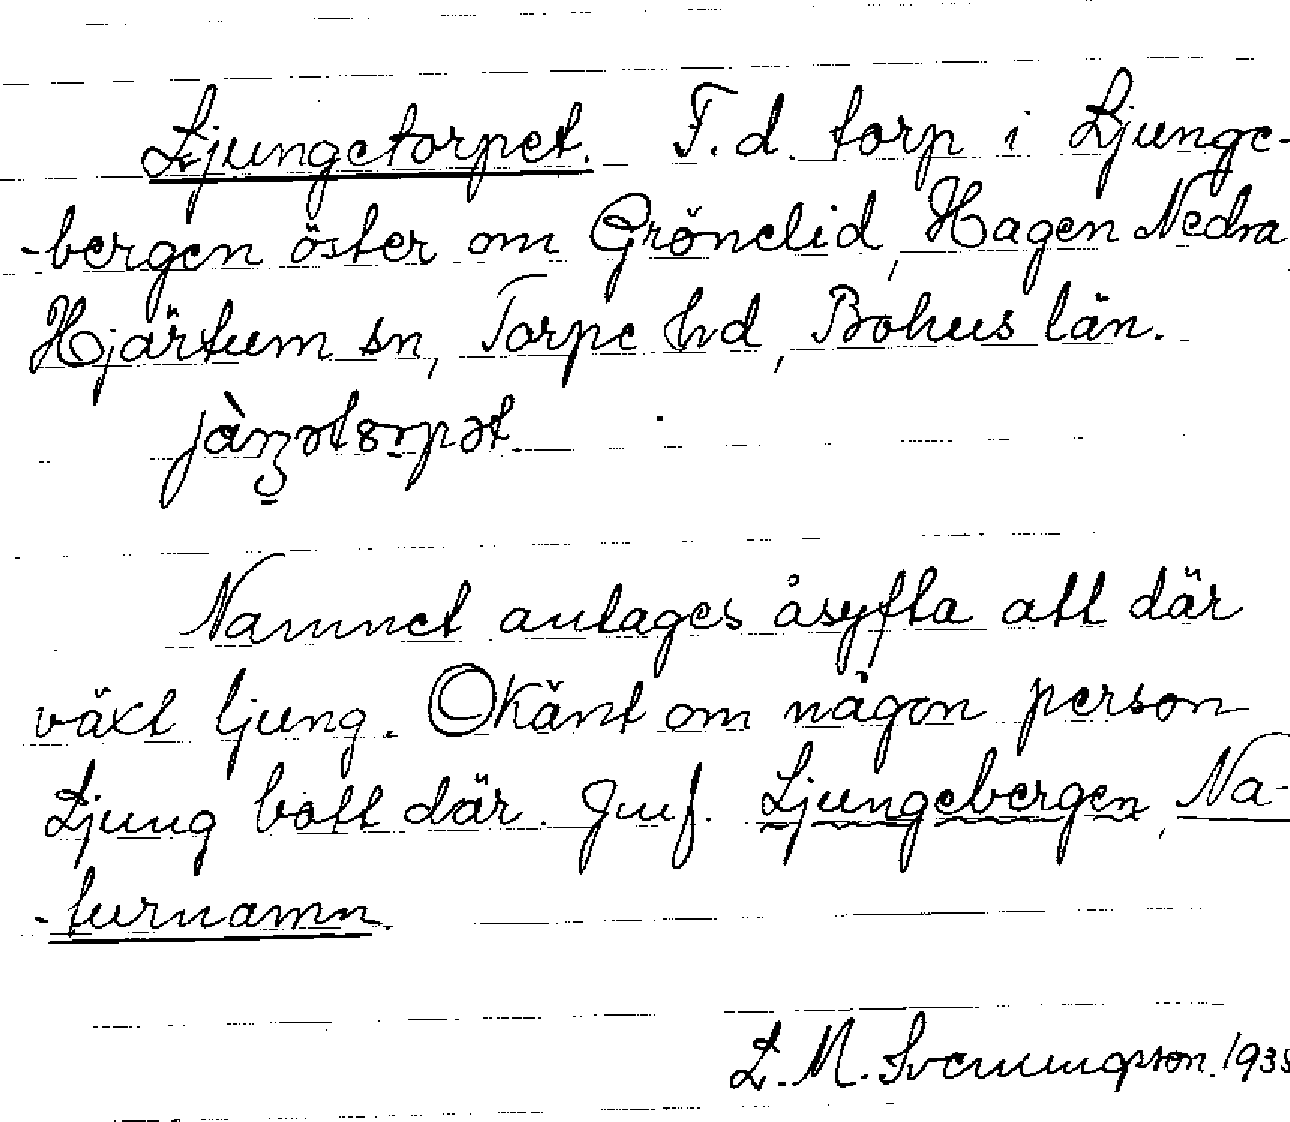 Ljungetorpet. F.d. torp i Ljunge-
-bergen öster om Grönelid, Hagen Nedra
Hjärtum sn, Torpe hd, Bohus län.
Namnet antages åsyfta att där
växt ljung. Okänt om någon person
Ljung bott där. Jmf. Ljungebergen, Na-
-turnamn.
L. M. Svenungsson. 1935